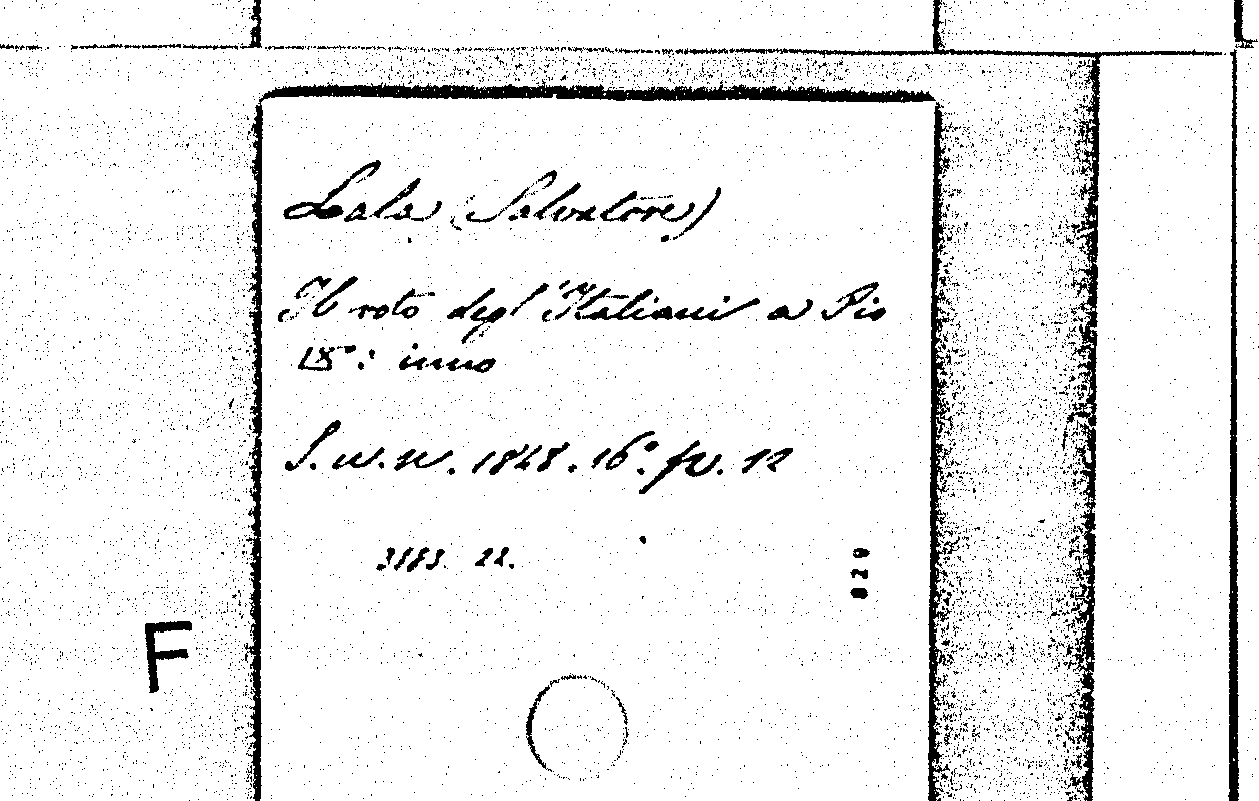 Lala (Salvatore)
Il voto degl'Italiani a Pio
IX°: inno
S. n. n. 1848. 16°. fp. 12
3183. 22.
029
F